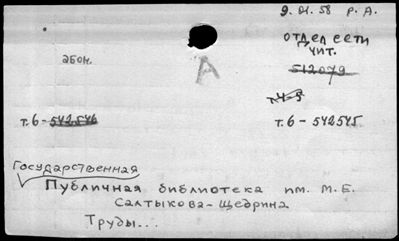 9.01.58 Р.А.
ОТДЕЛ СЕТИ
ЧИТ.
абон.
512079
А
т.4-5
т.6 - 542546
т.6 - 542545
Государственная
Публичная библиотека им. М.Е.
Салтыкова-Щедрина
Труды...